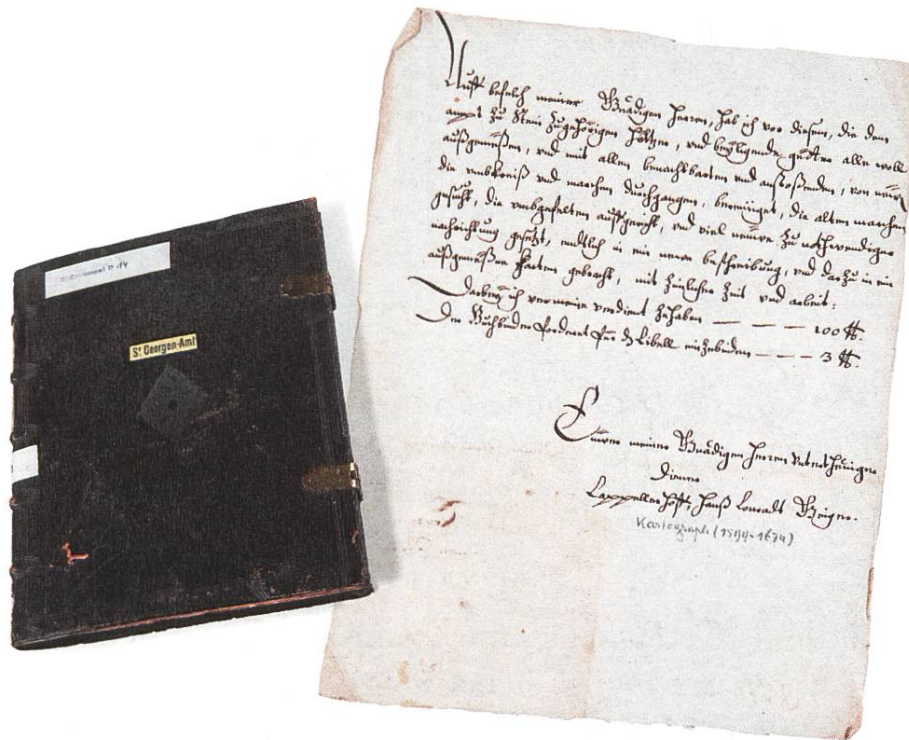 St Georgen-Amt
Auff befelch meiner Gnädigen herren, hab ich vor diesem, die dem
ampt zu Stein zugehörigen höltzer, und beyligende gütter alle woll
außgemeßen, und mit allen benachbarten und anstoßenden, von neüw
die umbkreiß und marchen durchgangen, bereiniget, die alten marchen
gesücht, die umbgefalnen auffgericht, und viel neüwe zu nothwendiger
nachrichtung gesetzt, endtlich in ein neuwe beschreibung, und darzu in ein
außgemeßne Karten gebracht, mit zimlicher Zeit und arbeit:
Darbey ich vermeine verdient zehaben — — — 100 ℔.
Der Buchbinder forderet für ds Libell einzebinden — — — 3 ℔.
Euwer meiner Gnädigen Herren Undertheniger
Diener
Cappellerhoff, Hanß Conradt Geiger.
Kartograph (1599-1674)